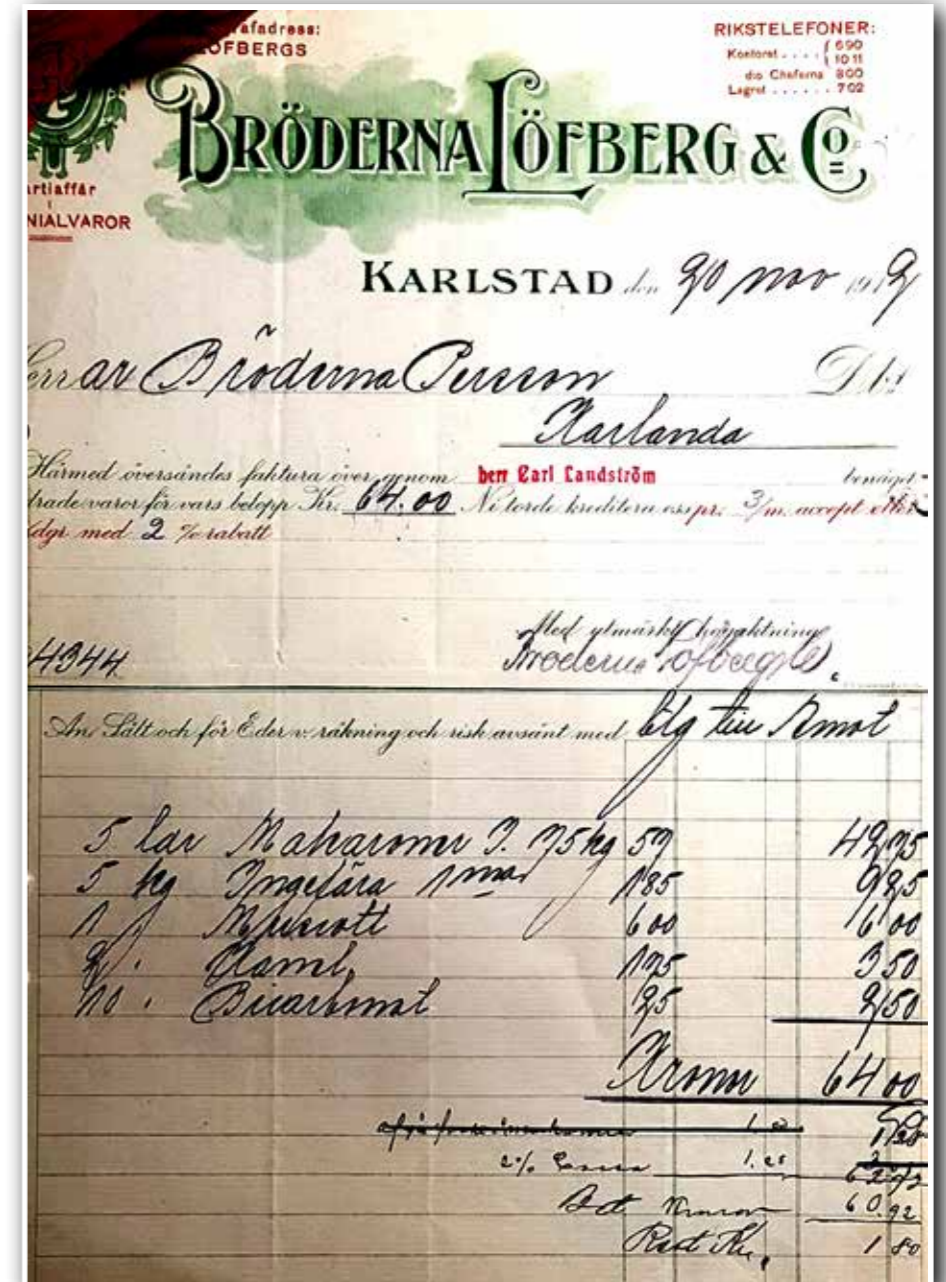 afadress:
OFBERGS
RIKSTELEFONER:
Kontoret . . . . { 690
1011
do Cheferna 800
Lagret . . . . . . 702
BRÖDERNA LÖFBERG & Co
artiaffär
i
NIALVAROR
KARLSTAD den 20 nov 1912
err ar Bröderna Persson
Karlanda
Härmed översändes faktura över genom herr Carl Landström benäget
drade varor för vars belopp Kr. 64.00 Ni torde kreditera oss pr. 3/m. accept eller
dgr med 2 % rabatt
4344
Med utmärkt högaktning
Bröderna Löfberg & C
An Sält och för Eder v. räkning och risk avsänt med blg till Åmot
5 lår Makaroner 75 kg 57 42,75
5 kg Ingefära 1 185 9,25
1 Muscott 6 00 6 00
2 " Kanel, 175 3 50
10 " Bicarbonat 25 2,50
Kronor 64 00
2% Cassa 1.28
60.92
Rest Kr. 1 80